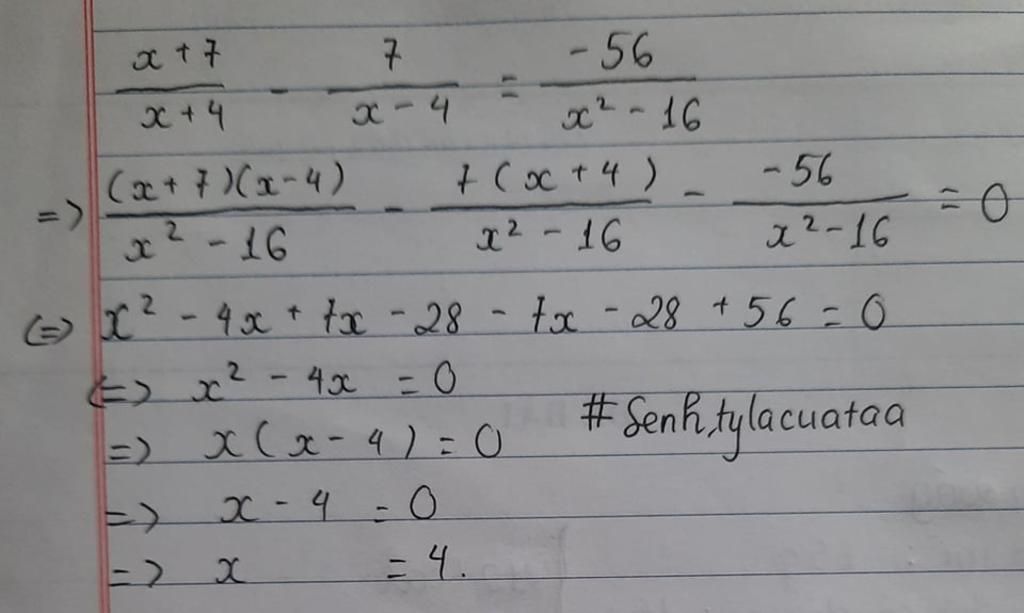 x + 7 / x + 4 - 7 / x - 4 = -56 / x² - 16
=> (x + 7)(x - 4) / x² - 16 - 7(x + 4) / x² - 16 - -56 / x² - 16 = 0
<=> x² - 4x + 7x - 28 - 7x - 28 + 56 = 0
<=> x² - 4x = 0
=> x(x - 4) = 0
#Senh,tylacuataa
=> x - 4 = 0
=> x = 4.